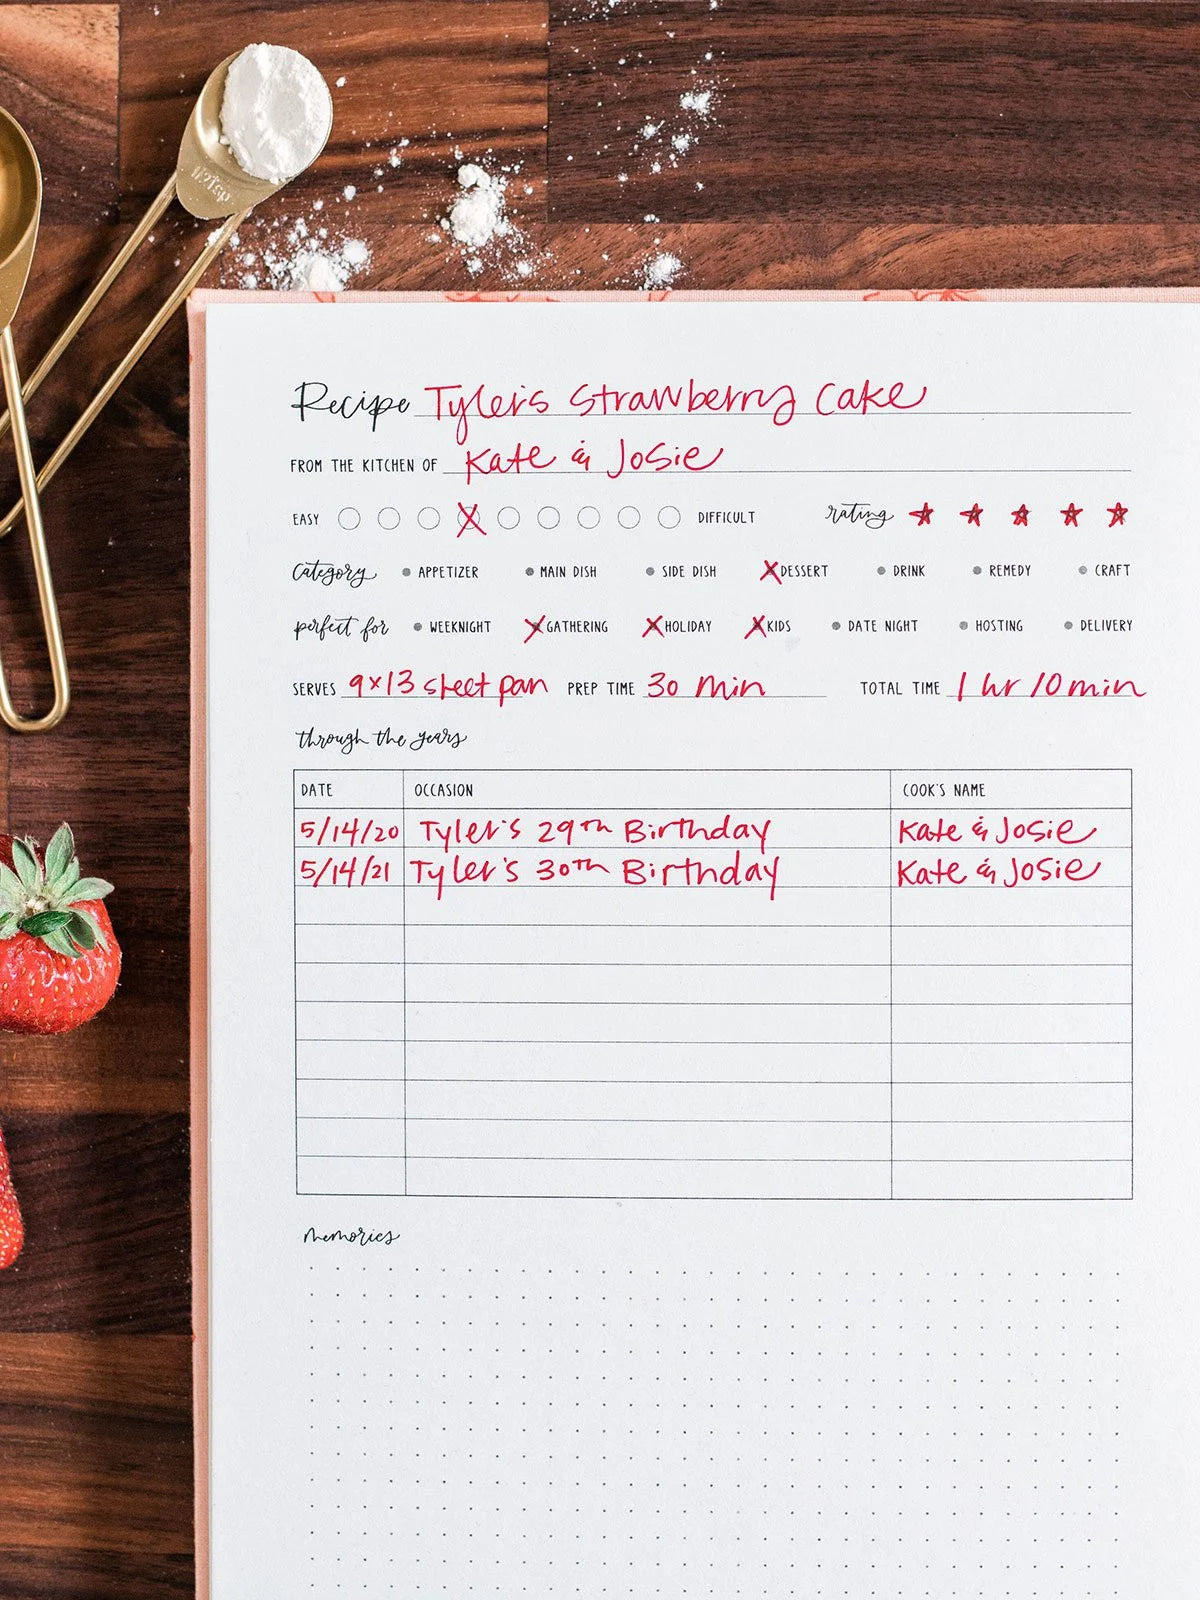 1/2 tsp
Recipe Tyler's Strawberry Cake
FROM THE KITCHEN OF Kate & Josie
EASY DIFFICULT rating
category APPETIZER MAIN DISH SIDE DISH DESSERT DRINK REMEDY CRAFT
perfect for WEEKNIGHT GATHERING HOLIDAY KIDS DATE NIGHT HOSTING DELIVERY
SERVES 9x13 sheet pan PREP TIME 30 min TOTAL TIME 1 hr 10 min
through the years
DATE OCCASION COOK'S NAME
5/14/20 Tyler's 29th Birthday Kate & Josie
5/14/21 Tyler's 30th Birthday Kate & Josie
memories